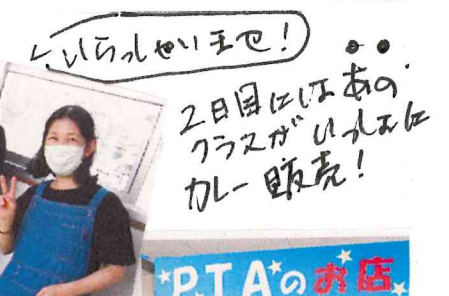 いらっしゃいませ!
2日目にはあの
クラスがいっしょに
カレー販売!
PTAのお店